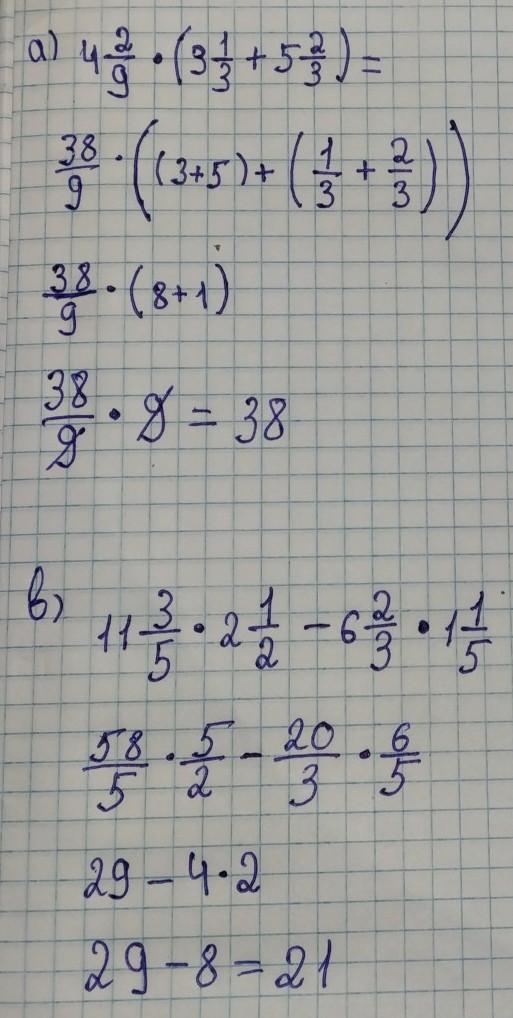 а) 4 2/9 · (3 1/3 + 5 2/3) =
38/9 · ((3+5) + (1/3 + 2/3))
38/9 · (8+1)
38/9 · 9 = 38
в) 11 3/5 · 2 1/2 - 6 2/3 · 1 1/5
58/5 · 5/2 - 20/3 · 6/5
29 - 4·2
29 - 8 = 21